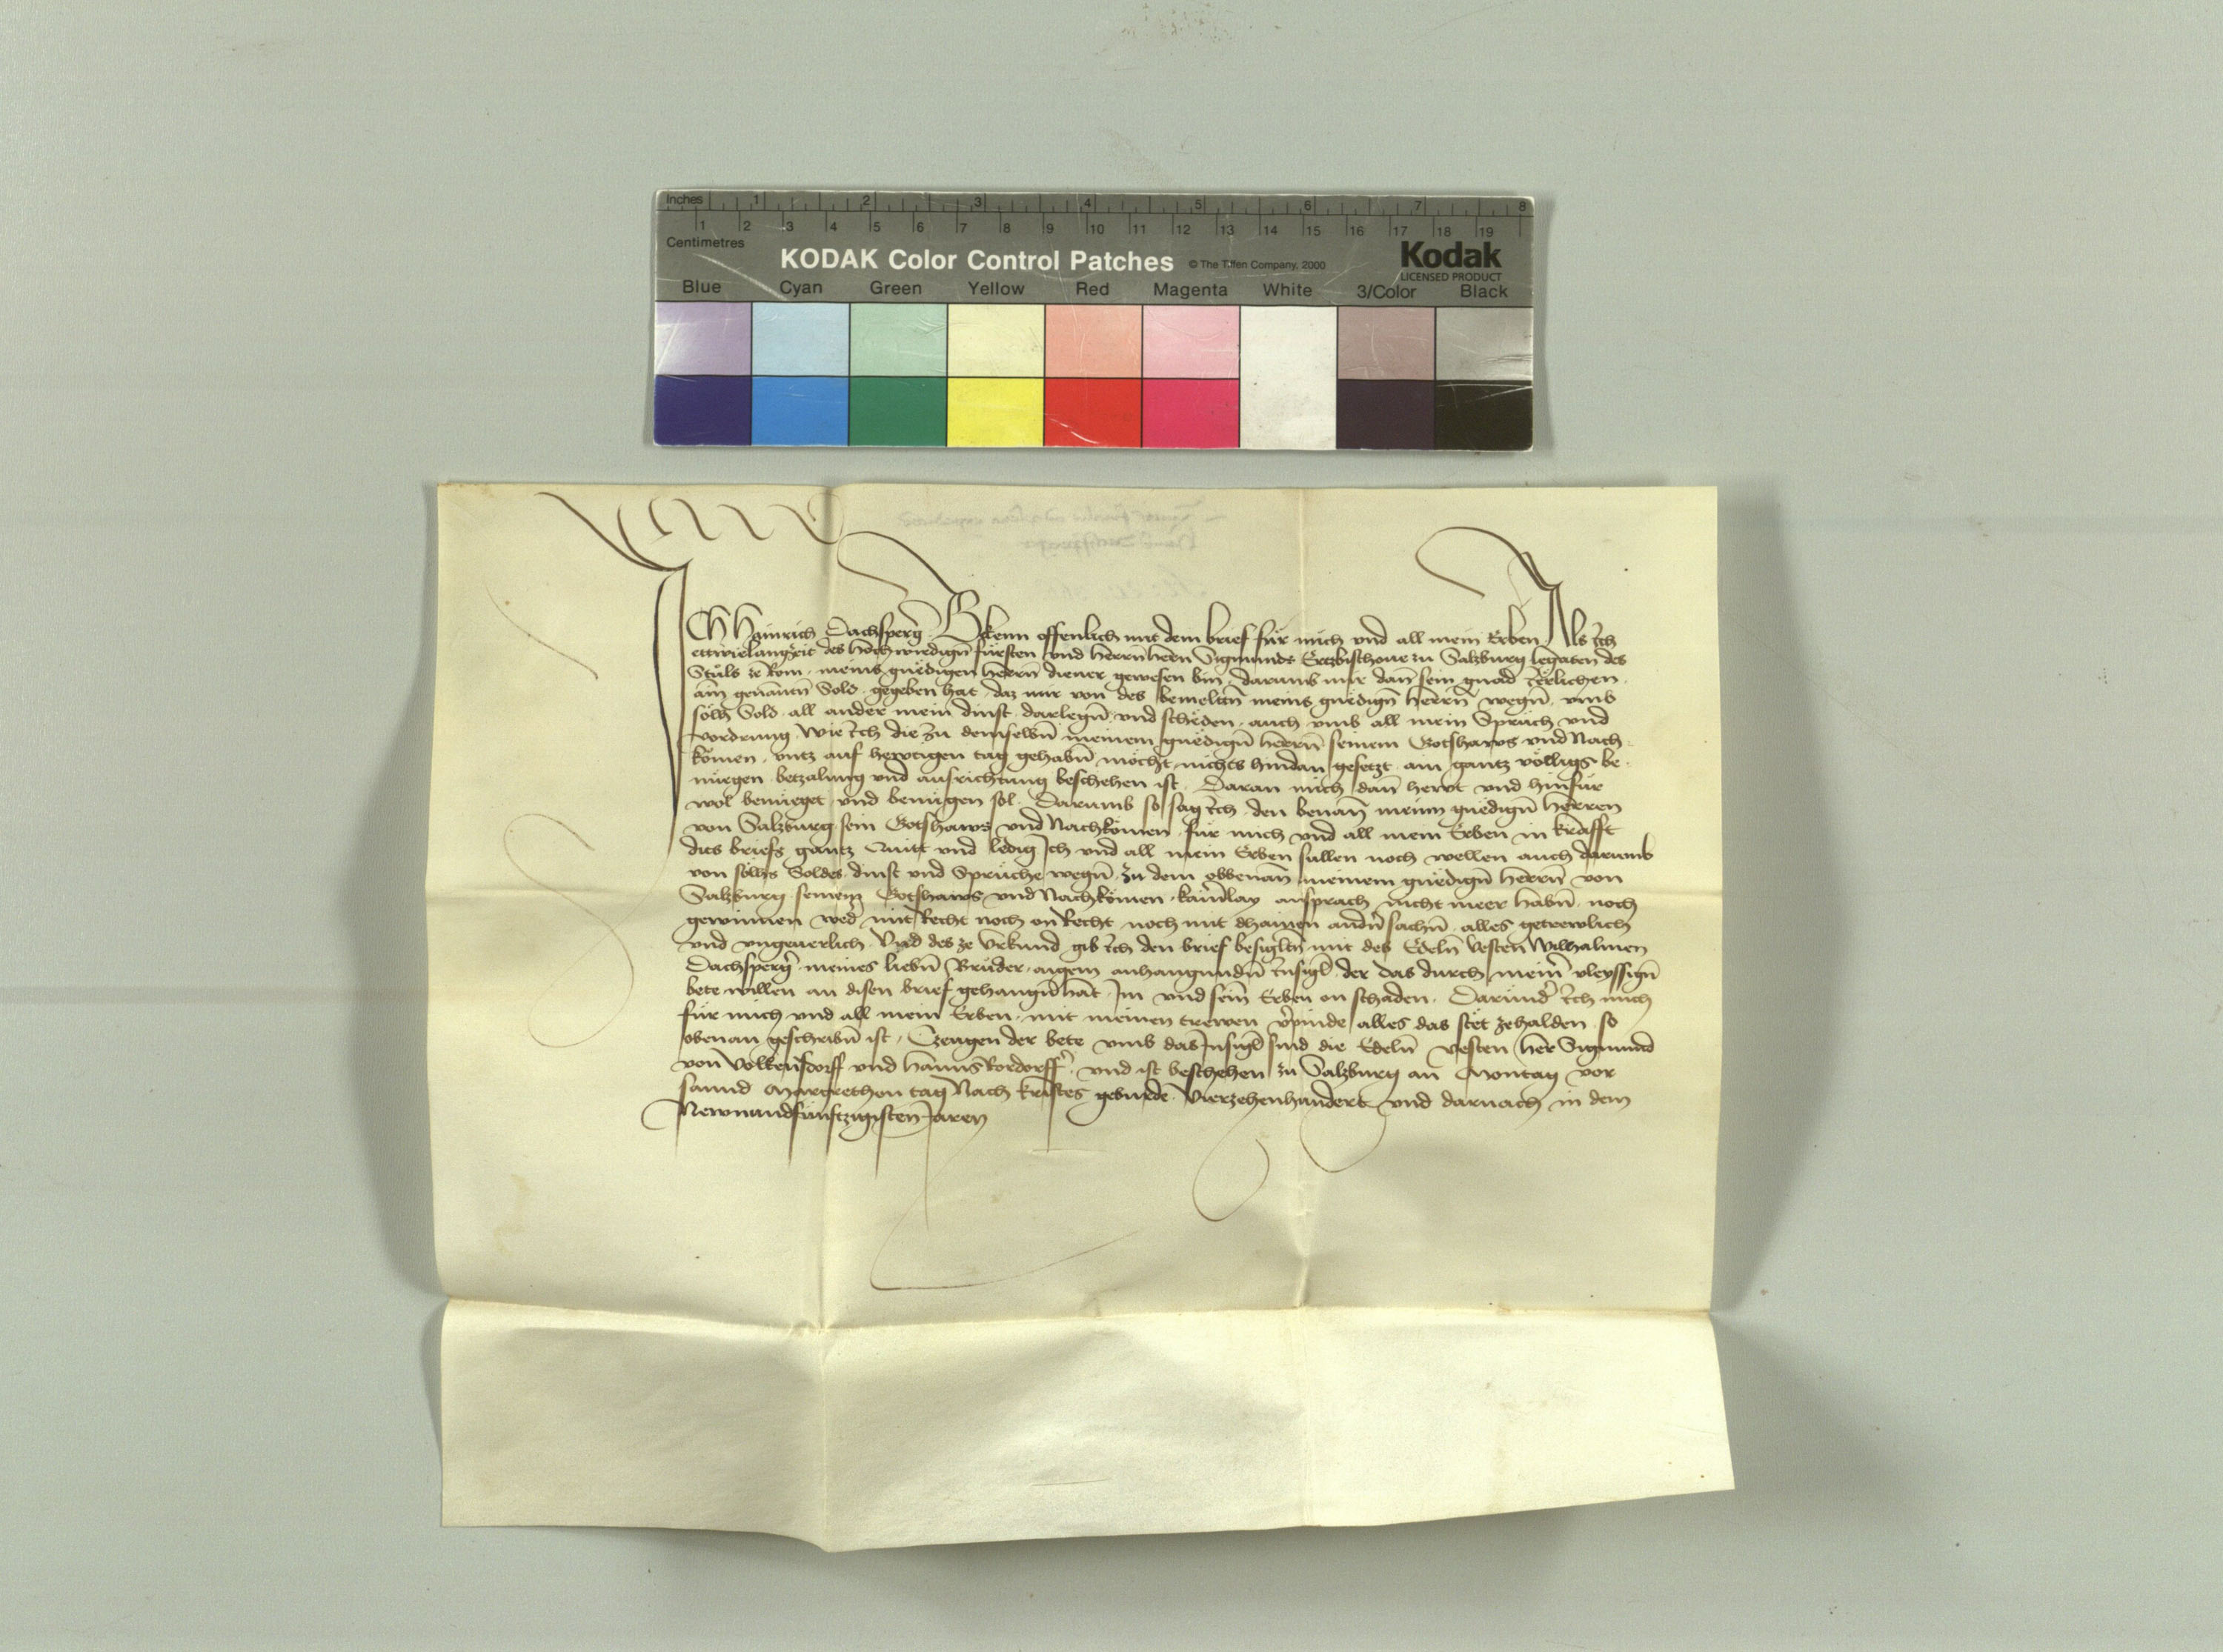 Inches 1 2 3 4 5 6 7 8
1 2 3 4 5 6 7 8 9 10 11 12 13 14 15 16 17 18 19
Centimetres
KODAK Color Control Patches © The Tiffen Company, 2000 Kodak
LICENSED PRODUCT
Blue Cyan Green Yellow Red Magenta White 3/Color Black
Ich Hainrich Dachsperg̃ Bekenn offenlich mit dem brief für mich vnd all mein Erben Als ich
ettwielangzeit des hochwirdign̄ fürsten vnd herrn̄ hern Sigmunds Ertzbischoue zu Salzburg legaten des
Stůls ze Rom · meins gnëdigen herrn̄ diener gewesen bin · darumb mir dan̄ sein gnad Jërlichen ·
ain genantn̄ Sold · gegeben hat · daz mir von des bemeltn̄ meins gnëdign̄ herrn̄ wegn̄ · vmb
sölh Sold · all ander mein dinst · darlegn̄ vnd schëden · auch vmb all mein Sprüch vnd
vordrung · wie ich die zu demselbn̄ meinem gnëdign̄ herrn̄ seinem Gotshaws vnd Nach
komen · vntz auf hewtigen tag gehabn̄ möcht nichts hindan gesetzt · ain gantz völligs be
nügen · betzalung vnd ausrichtung beschehen ist · Daran mich dan̄ hewt vnd hinfür
wol benüeget vnd benügen sol · Darumb so sag ich · den benan̄ meinn gnëdign̄ herren
von Salzburg sein Gotshaws vnd Nachkomen · für mich vnd all mein Erben in krafft
dits briefs gantz Quitt vnd ledig Ich vnd all mein Erben sullen noch wellen auch darumb
von sölhs Soldes dinst vnd Sprüche wegn̄ · zu dem obbenan̄ meinem gnëdign̄ herrn̄ von
Salzburg seinem Gotshaws vnd Nachkomen · kainlay ansprach nicht meer habn̄ · noch
gewinnen wed̃ mit Recht noch on Recht noch mit dhainen andn̄ sachn̄ · alles getrewlich
vnd vngeuerlich · Vnd des ze Vrkund gib ich den brief besigltn̄ mit des Edeln̄ Vesten Wilhalmen
Dachsperg̃ · meines liebn̄ Brůder · aigem anhangundn̄ insigl̄ der das durch meiñ vleyssign̄
bete willen an disen brief gehangn̄ hat · Im vnd sein̄ Erben on schaden · Darund̃ ich mich
für mich vnd all mein Erben · mit meinen trewen v̄pinde alles das stët zehalden so
obenan geschribn̄ ist · Tzeugen der bete vmb das Insigl̄ sind die Edeln̄ vesten her Sigmund
von Volkenstorff vnd Hanns Rordorff̃ · vnd ist beschehen zu Salzburg an Montag vor
sannd Margrethen tag Nach kristes geburde · Vierzehenhundert vnd darnach in dem
Newnundfünftzigisten Jaren